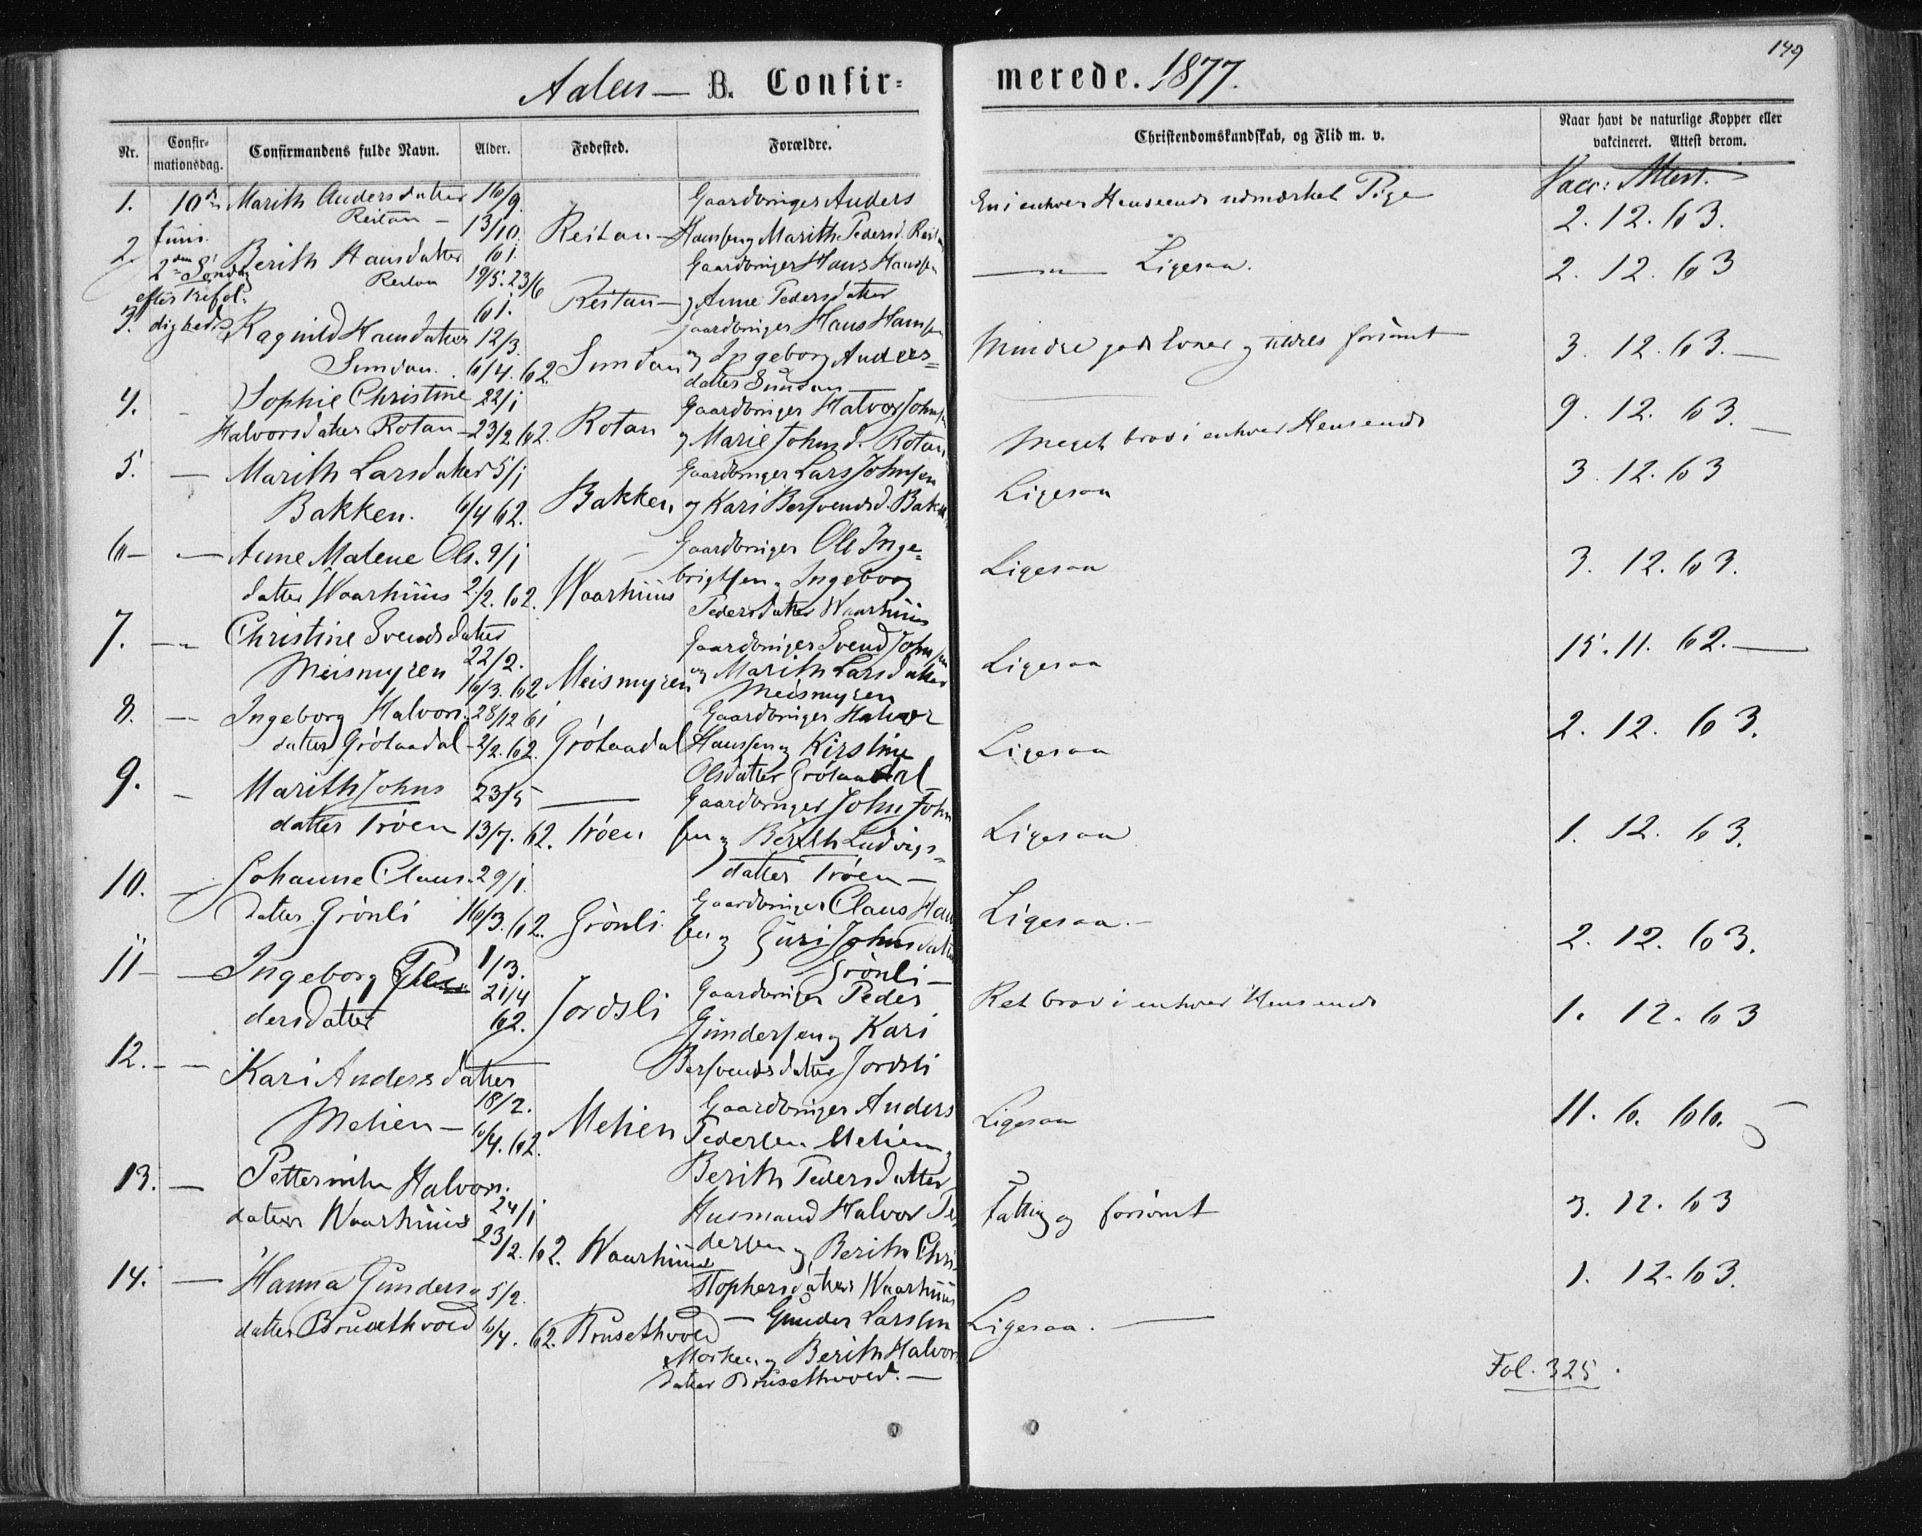 149
Aalen — B. Confir= merede. 1877.
Nr. Confir-mationsdag. Confirmandens fulde Navn. Alder. Fødested. Forældre. Christendomskundskab, og Flid m. v. Naar havt de naturlige Kopper eller vakcineret. Attest derom.
Vacc: Attest.
1. 10de Marith Andersdatter 16/9. Gaardbruger Anders En i enhver Henseende udmærket Pige 2. 12. 63.
Juni. Reitan — 13/10. Reitan — Hansen og Marith Pedersd. Reitan
2. 2den Søndag Berith Hansdatter 61. Gaardbruger Hans Hansen —"— Ligesaa. 2. 12. 63
efter Trefol- Reitan 19/5. 23/6 Reitan — og Anne Pedersdatter
3. digheds Ragnild Hansdatter 61. 12/3. Gaardbruger Hans Hansen Mindre gode Evner og forsømt 3. 12. 63. —
Sundan. 6/4. 62. Sundan og Ingeborg Anders=
datter Sundan —
4. — Sophie Christine 22/1 Gaardbruger Halvor Johnsen 9. 12. 63. —
Halvorsdatter Rotan — 23/2. 62. Rotan og Marie Johnsd. Rotan Meget brav i enhver Henseende
5. — Marith Larsdatter 5/1 Gaardbruger Lars Johnsen Ligesaa 3. 12. 63
Bakken. 6/4 62. Bakken og Kari Bersvendsd. Bakken
6 — — Anne Malene Ols. 9/1 Gaardbruger Ole Inge= Ligesaa 3. 12. 63.
datter Waarhuus 2/2. 62. Waarhuus brigtsen og Ingeborg
Pedersdatter Waarhuus
7. — Christine Svendsdatter 22/2. Gaardbruger Svend Johnsen Ligesaa 15. 11. 62. —
Meismyren 16/3. 62 Meismyren og Marith Larsdatter
Meismyren
8. — Ingeborg Halvors. 28/12 61 Gaardbruger Halvor Ligesaa 2. 12. 63.
datter Grótaadal — 2/2. 62. Grótaadal Hansen og Kirstine
Olsdatter Grótaadal
9. — Marith Johns 23/5 Gaardbruger John John Ligesaa 1. 12. 63.
datter Trøen 13/7. 62. Trøen sen og Berith Ludvigs=
datter Trøen —
10. — Johanne Claus. 29/1. Gaardbruger Claus Han Ligesaa. — 2. 12. 63.
datter Grónli 16/3. 62. Grónli sen og Guri Johnsdatter
Grónli —
11 — — Ingeborg Pe 1/3. Gaardbruger Peder Ret brav i enhver Henseende 1. 12. 63
dersdatter 21/4 62. Jordsli Gundersen og Kari
Bersvendsdatter Jordsli
12. — — Kari Andersdatter 18/2. Gaardbruger Anders Ligesaa 11. 6. 66. —
Mehien — 6/4. 62. Mehien Pedersen Mehien og
Berith Pedersdatter
13. — Petternicke Halvors. 24/1 Husmand Halvor Pe Fattig og forsømt 3. 12. 63
datter Waarhuus 23/2. 62. Waarhuus dersen og Berith Chri-
stophersdatter Waarhuus
14. — Hanna Gunders 5/2. — Gunder Larssen Ligesaa. — 1. 12. 63.
datter Brusethvold 6/4. 62. Brusethvold Morken og Berith Halvors
datter Brusethvold. —
Fol. 325.